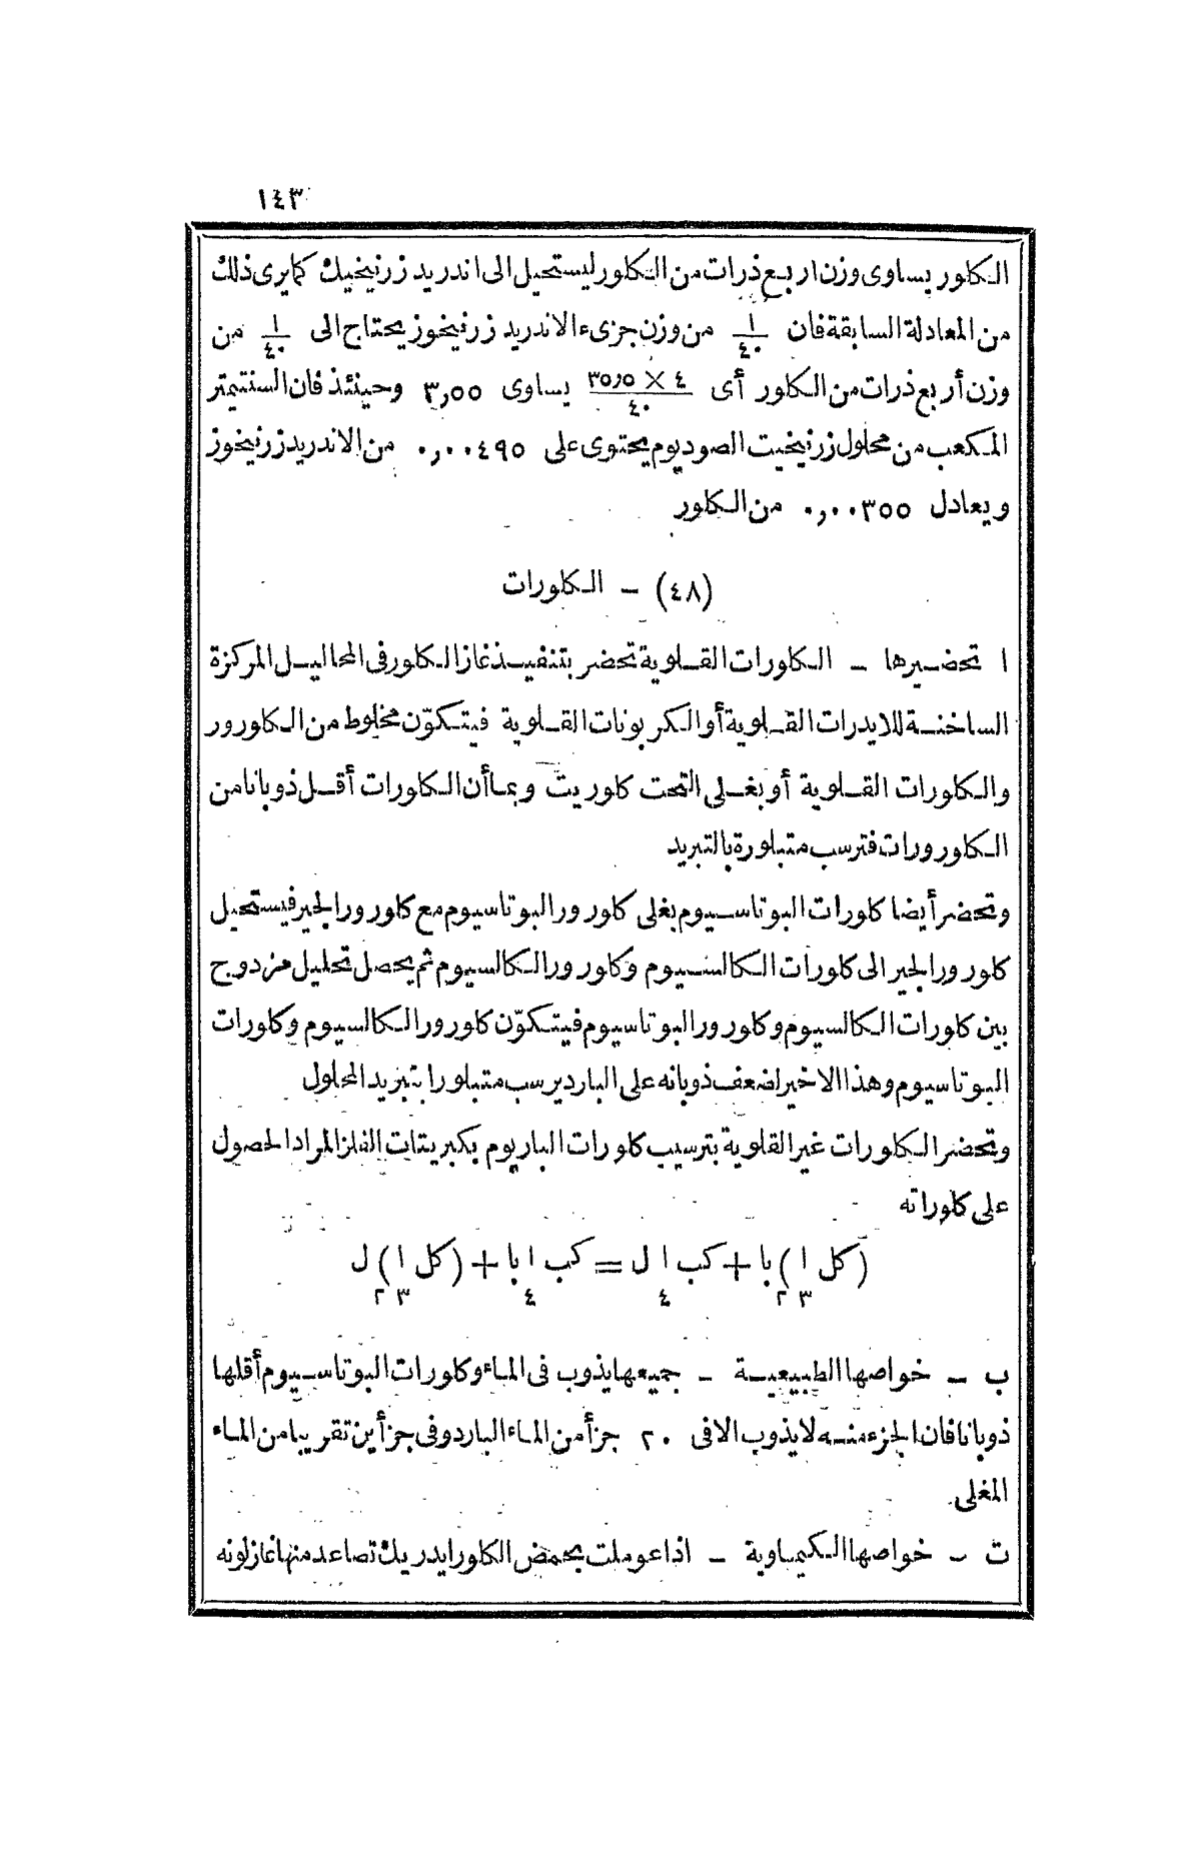 ١٤٣
الكلور يساوى وزن اربع ذرات من الكلور ليستحيل الى اندريد زرنيخيك كما يرى ذلك
من المعادلة السابقة فان ١/٤٠ من وزن جزىء الاندريد زرنيخوز يحتاج الى ١/٤٠ من
وزن أربع ذرات من الكلور أى ٤ × ٣٥٫٥ / ٤٠ يساوى ٣٫٥٥ وحينئذ فان السنتيمتر
المكعب من محلول زرنيخيت الصوديوم يحتوى على ٠٫٠٠٤٩٥ من الاندريد زرنيخوز
ويعادل ٠٫٠٠٣٥٥ من الكلور
(٤٨) – الكلورات
ا تحضيرها – الكلورات القلوية تحضر بتنفيذ غاز الكلور فى المحاليل المركزة
الساخنة للايدرات القلوية أو الكربونات القلوية فيتكوّن مخلوط من الكلورور
والكلورات القلوية أو بغلى التحت كلوريت وبما أن الكلورات أقل ذوبانا من
الكلورورات فترسب متبلورة بالتبريد
وتحضر أيضا كلورات البوتاسيوم بغلى كلورور البوتاسيوم مع كلورور الجير فيستحيل
كلورور الجير الى كلورات الكالسيوم وكلورور الكالسيوم ثم يحصل تحليل مزدوج
بين كلورات الكالسيوم وكلورور البوتاسيوم فيتكوّن كلورور الكالسيوم وكلورات
البوتاسيوم وهذا الاخير لضعف ذوبانه على البارد يرسب متبلورا بتبريد المحلول
وتحضر الكلورات غير القلوية بترسيب كلورات الباريوم بكبريتات الفلز المراد الحصول
على كلوراته
(كل ا٣)٢ با + كب ا٤ ل = كب ا٤ با + (كل ا٣)٢ ل
ب – خواصها الطبيعية – جميعها يذوب فى الماء وكلورات البوتاسيوم أقلها
ذوبانا فان الجزء منه لا يذوب الا فى ٢٠ جزأ من الماء البارد وفى جزأين تقريبا من الماء
المغلى
ت – خواصها الكيماوية – اذا عوملت بحمض الكلورايدريك تصاعد منها غاز لونه